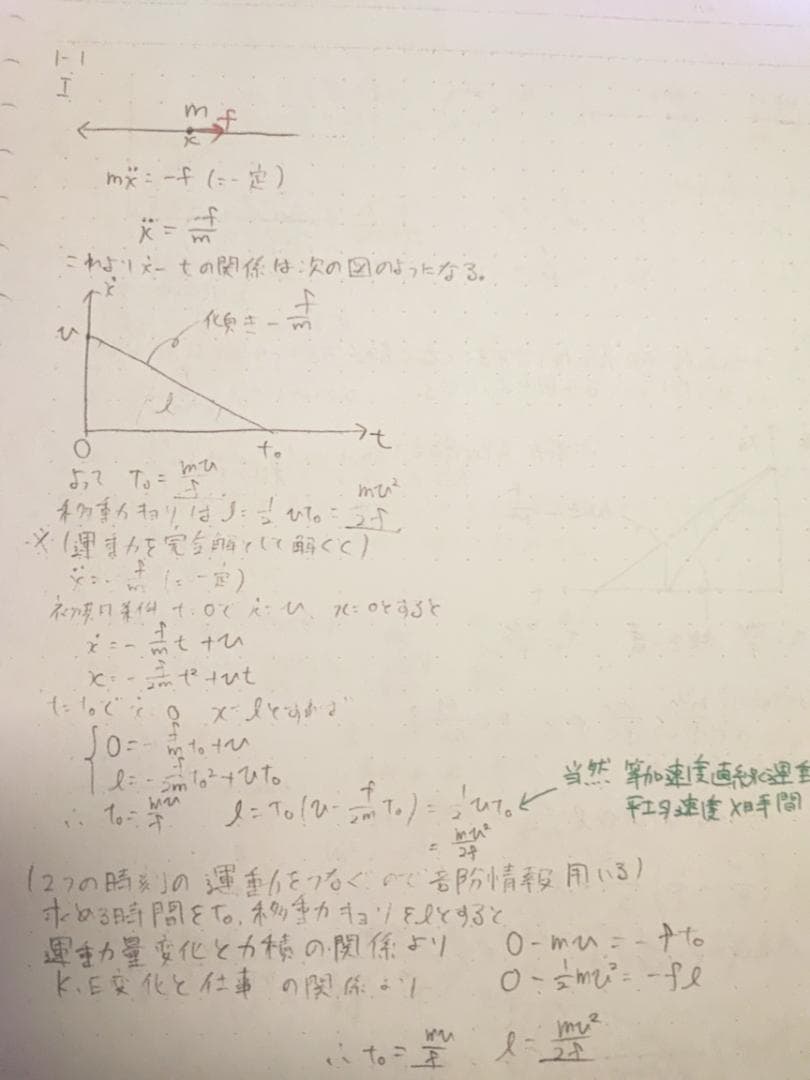 1-1
I
m
f
x
mẍ = -f (= 一定)
ẍ = -f/m
これより ẋ - t の関係は次の図のようになる。
ẋ
傾き - f/m
v
l
O
t₀
t
よって t₀ = mv/f
移動キョリは l = 1/2 vt₀ = mv²/2f
※ (運動を完全解として解くく)
ẍ = - f/m (= 一定)
初期条件 t=0で ẋ = v、x=0とすると
ẋ = - f/m t + v
x = - f/2m t² + vt
t = t₀で ẋ = 0 x = l とすれば
0 = - f/m t₀ + v
l = - f/2m t₀² + vt₀
∴ t₀ = mv/f l = t₀(v - f/2m t₀) = 1/2 vt₀
= mv²/2f
当然 等加速度直線運動
平均速度×時間
(2つの時刻の運動をつなぐので 階情報用いる)
求める時間をt₀、移動キョリをlとすると
運動量変化と力積の関係より 0 - mv = - ft₀
K.E変化と仕事の関係より 0 - 1/2 mv² = - fl
∴ t₀ = mv/f l = mv²/2f